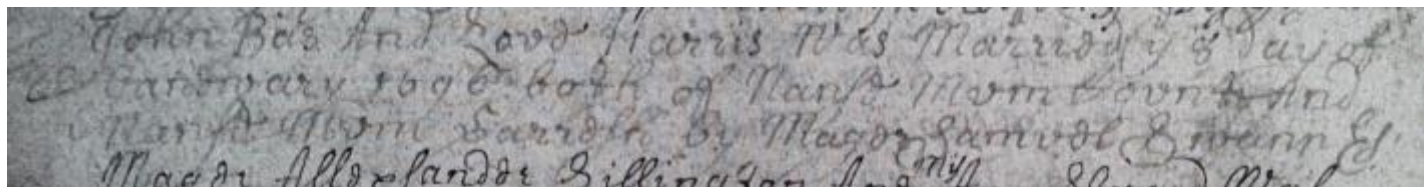 John Bas And Love Harris Was Married y 8 day of
Janewary 1696 both of Nanse Mum County And
Nanse Mum Parresh by Mager Samuel Swann Es
Mager Allexsander Lillington And